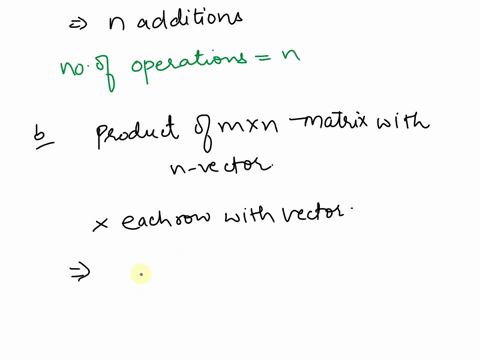 ⇒ n additions
no. of operations = n
b Product of m×n matrix with
n-vector.
× each row with vector.
⇒